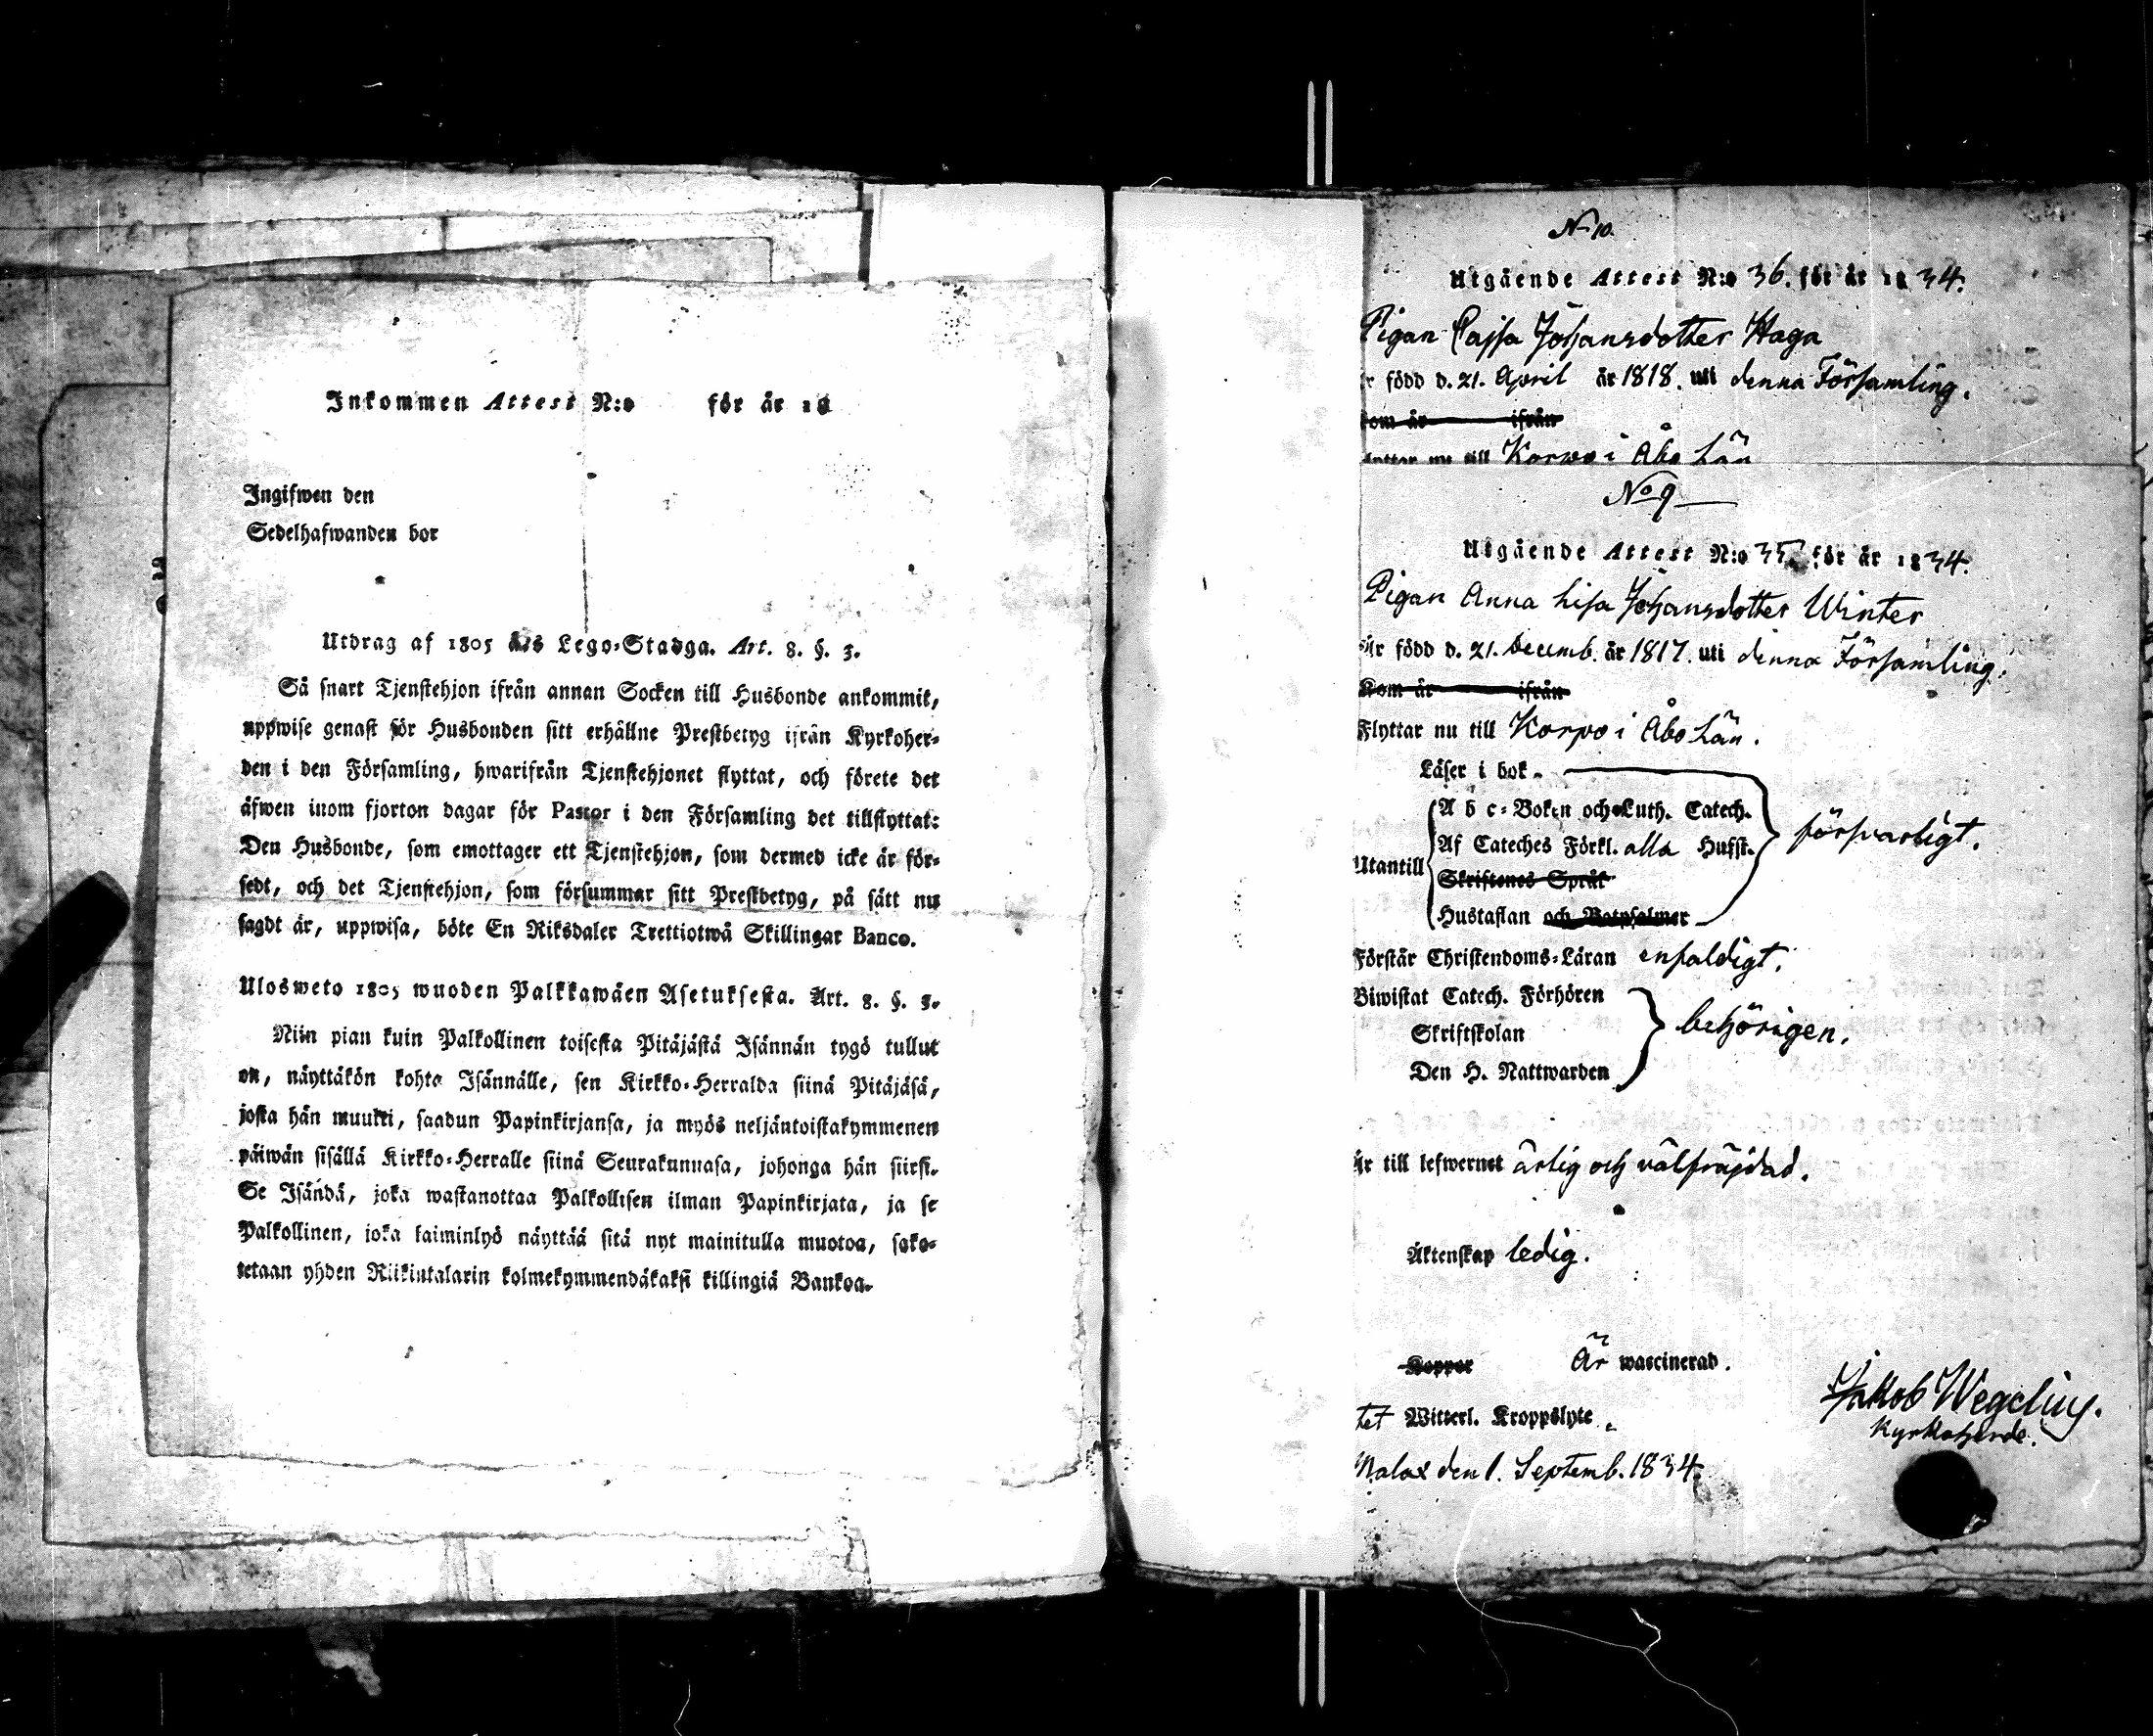 Inkommen Attest N:o för år 18
Ingifwen den
Sedelhafwanden bor
Utdrag af 1805 års Lego-Stadga. Art. 8. §. 3.
Så snart Tjenstehjon ifrån annan Socken till Husbonde ankommit,
uppwise genast för Husbonden sitt erhållne Prestbetyg ifrån Kyrkoher-
den i den Församling, hwarifrån Tjenstehjonet flyttat, och förete det
äfwen inom fjorton dagar för Pastor i den Församling det tillflyttat:
Den Husbonde, som emottager ett Tjenstehjon, som dermed icke är för-
sedt, och det Tjenstehjon, som försummar sitt Prestbetyg, på sätt nu
sagdt är, uppwisa, böte En Riksdaler Trettiotwå Skillingar Banco.
Ulosweto 1805 wuoden Palkkawäen Asetuksesta. Art. 8. §. 3.
Niin pian kuin Palkollinen toisesta Pitäjästä Isännän tygö tullut
on, näyttäkön kohta Isännälle, sen Kirkko-Herralda siinä Pitäjäsä,
josta hän muutti, saadun Papinkirjansa, ja myös neljäntoistakymmenen
päiwän sisällä Kirkko-Herralle siinä Seurakunnasa, johonga hän siirsi.
Se Isändä, joka wastanottaa Palkollisen ilman Papinkirjata, ja se
Palkollinen, joka laiminlyö näyttää sitä nyt mainitulla muotoa, sako-
tetaan yhden Riikintalarin kolmekymmendäkaksi killingiä Bankoa.
No 10.
Utgående Attest N:o 36. för år 1834.
Pigan Cajsa Johansdotter Haga
r född d. 21. April år 1818. uti denna Församling.
om år ifrån
lyttar nu till Korpo i Åbo Län
No 9
Utgående Attest N:o 35 för år 1834.
Pigan Anna Lisa Johansdotter Winter
Är född d. 21. Decemb. år 1817. uti denna Församling.
Kom år ifrån
Flyttar nu till Korpo i Åbo Län.
Läser i bok
A b c-Boken och Luth. Catech.
försvarligt.
Af Cateches Förkl. alla Hufst.
Utantill
Skriftenes Språk
Hustaflan och Botpsalmer
Förstår Christendoms-Läran enfaldigt.
Biwistat Catech. Förhören
Skriftskolan
behörigen.
Den H. Nattwarden
Är till lefwernet ärlig och välfräjdad.
Äktenskap ledig.
Koppor Är waccinerad.
tet Witterl. Kroppslyte
Jakob Wegelius.
Kyrkoherde.
Malax den 1. Septemb. 1834.